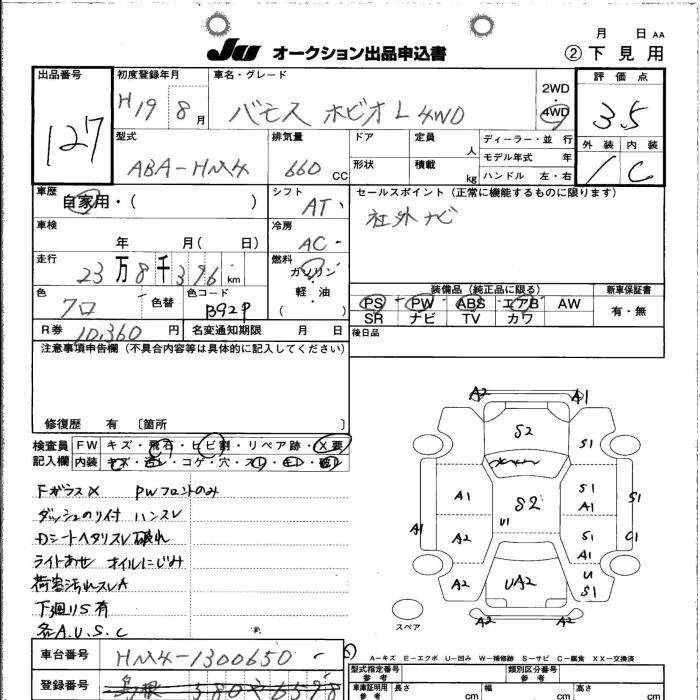 月 日 AA
JU オークション出品申込書 ② 下見用
出品番号 初度登録年月 車名・グレード 評価点
127 H19 8月 バモス ホビオL 4WD 2WD 4WD 3.5
外装 内装
/ C
型式 排気量 ドア 定員 人 ディーラー・並 行
ABA-HM4 660 CC 形状 積載 kg モデル年式 年
ハンドル 左・右
車歴 自家用・( ) シフト AT セールスポイント(正常に機能するものに限ります)
社外ナビ
車検 年 月( 日) 冷房 AC
走行 23万8千396km 燃料 ガソリン・軽油 ( )
装備品(純正品に限る) 新車保証書
PS PW ABS エアB AW 有・無
SR ナビ TV カワ
色 クロ 色替 色コード B92P
後日品
R券 10,360円 名変通知期限 月 日
注意事項申告欄(不具合内容等は具体的に記入してください)
修復歴 有 〔箇所 〕
検査員 FW キズ・飛石・ヒビ割・リペア跡・X要
記入欄 内装 キズ・コゲ・穴・スレ
Fガラス X PWフロントのみ
ダッシュのり付 ハンスレ
Dシートヘタリスレ 破れ
ライトあせ オイルにじみ
荷室汚れスレA
下廻りS有
各A.U.S.C
A2 A1
S2 S1
A1 S2 S1 A1 S1
U1
A1 A2 S1 A1 C1
A2 UA2 U S1
A2 A2
スペア
A-キズ E-エクボ U-凹み W-補修跡 S-サビ C-腐食 XX-交換済
車台番号 HM4-1300650
登録番号 島根 580 や 6598
型式指定番号 参考 類別区分番号 参考
車庫証明用 参考 長さ cm 幅 cm 高さ cm